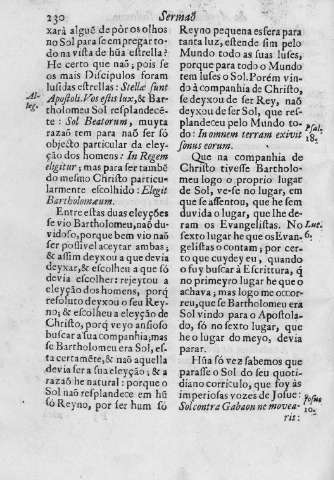 230 Sermaõ
xarà alguẽ de pòr os olhos
no Sol para se em pregar to-
do na vista de hũa estrella?
He certo que naõ; pois se
os mais Discipulos foram
lusidas estrellas: Stellæ sunt
Al-
leg.
Apostoli. Vos estis lux, & Bar-
tholomeu Sol resplandecẽ-
te: Sol Beatorum, muyta
razaõ tem para naõ ser só
objecto particular da eley-
ção dos homens: In Regem
eligitur; mas para ser tambẽ
do mesmo Christo particu-
larmente escolhido: Elegit
Bartholomæum.
Entre estas duas eleyções
se vio Bartholomeu, naõ du-
vidoso, porque bem vio naõ
ser possivel aceytar ambas;
& assim deyxou a que devia
deyxar, & escolheu a que só
devia escolher: rejeytou a
eleyção dos homens, porq̃
resoluto deyxou o seu Rey-
no; & escolheu a eleyção de
Christo, porq̃ veyo ansioso
buscar a sua companhia; mas
se Bartholomeu era Sol, es-
ta certamẽte, & naõ aquella
devia ser a sua eleyção; & a
razaõ he natural: porque o
Sol naõ resplandece em hũ
só Reyno, por ser hum só
Reyno pequena esfera para
tanta luz, estende sim pelo
Mundo todo as suas luses,
porque para todo o Mundo
tem luses o Sol. Porém vin-
do à companhia de Christo,
se deyxou de ser Rey, naõ
deyxou de ser Sol, que res-
plandeceu pelo Mundo to-
do: In omnem terram exivit
Psal.
18.
sonus eorum.
Que na companhia de
Christo tivesse Bartholo-
meu logo o proprio lugar
de Sol, ve-se no lugar, em
que se assentou, que he sem
duvida o lugar, que lhe de-
ram os Evangelistas. No
Luc.
6.
sexto lugar he que os Evan-
gelistas o contam; por cer-
to que cuydey eu, quando
o fuy buscar à Escritura, q̃
no primeyro lugar he que o
achava; mas logo me occor-
reu, que se Bartholomeu era
Sol vindo para o Apostola-
do, só no sexto lugar, que
he o lugar do meyo, devia
parar.
Hũa só vez sabemos que
parasse o Sol do seu quoti-
diano corriculo, que foy às
imperiosas vozes de Josue:
Josue
10.
Sol contra Gabaon ne movea-
ris: